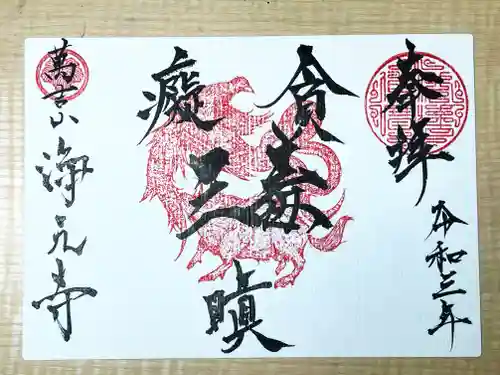 奉拝
令和三年
貪
瞋
癡
三毒
萬吉山
海元寺